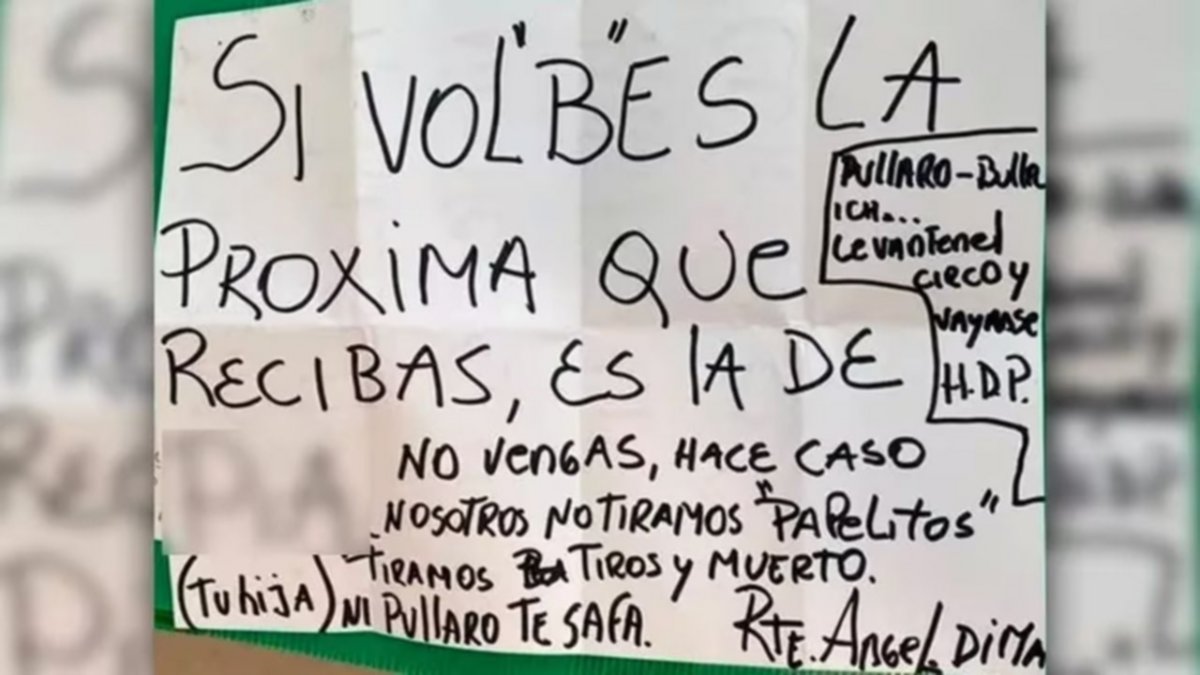 SI VOL"B"ES LA
PROXIMA QUE
RECIBAS, ES LA DE
(TU hija)
NO VENGAS, HACE CASO
NOSOTROS NO TIRAMOS "PAPELITOS"
TIRAMOS TIROS Y MUERTO.
NI PULLARO TE SAFA.
RTE. ANGEL DIMA
PULLARO - Bulla
ICH...
LEVANTEN EL
CIRCO Y
VAYANSE
H.D.P.